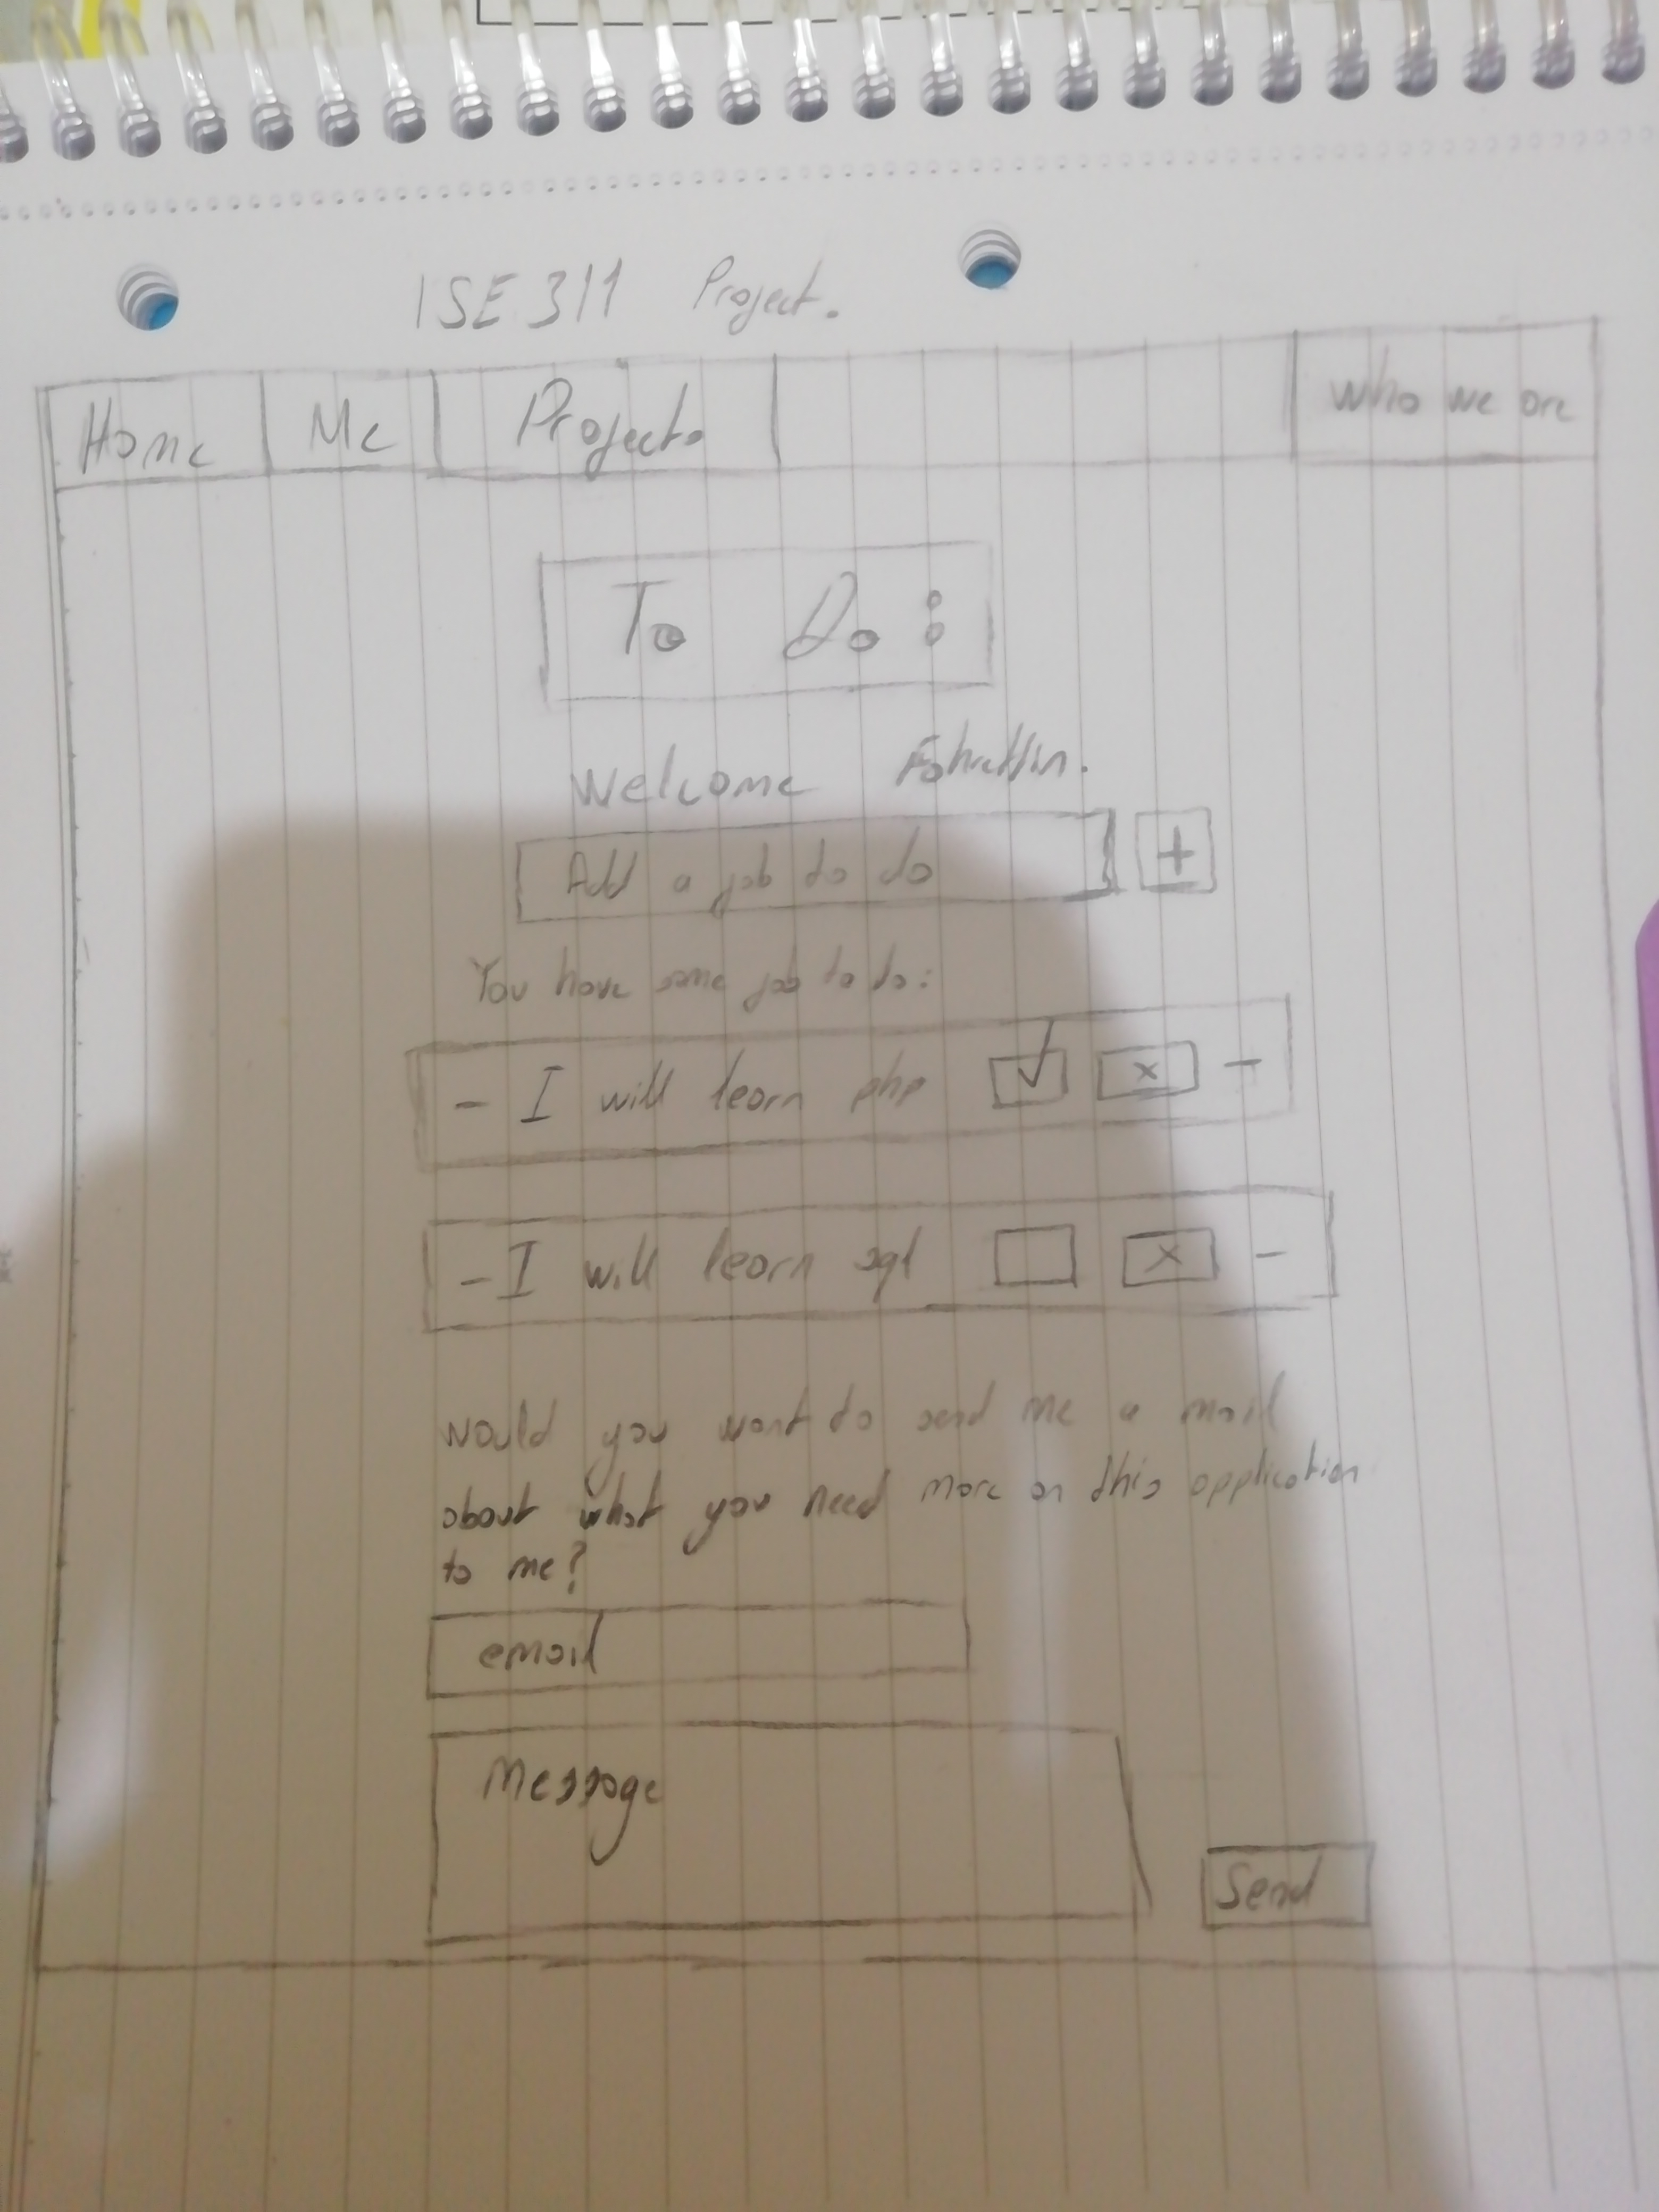 ISE 311 Project.
Home Me Project. who we are
To Do :
Welcome Fahrettin.
Add a job to do +
You have some job to do:
- I will learn php ✓ x -
- I will learn sql x -
would you want to send me a mail
about what you need more on this application
to me?
email
Message
Send